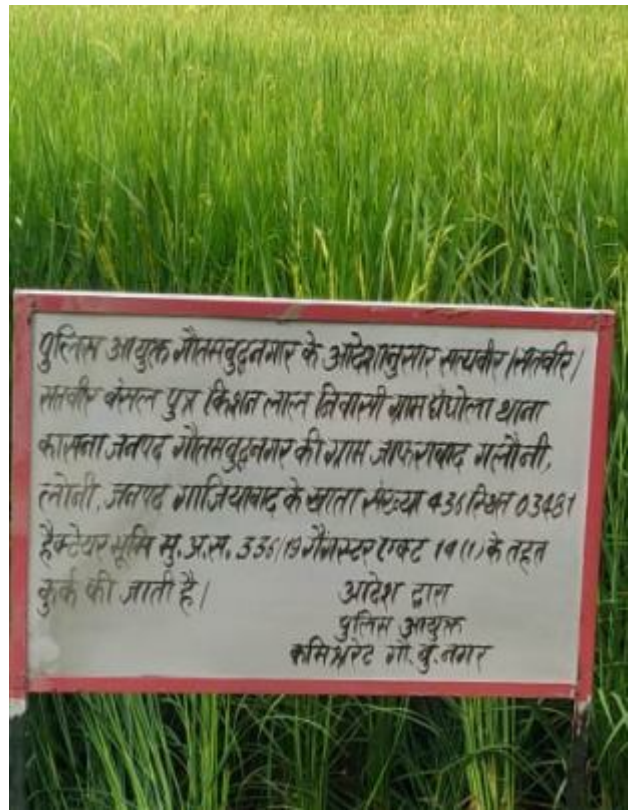 पुलिस आयुक्त गौतमबुद्धनगर के आदेशानुसार सत्यवीर/सतवीर/
सतवीर बंसल पुत्र किशन लाल निवासी ग्राम घंघोला थाना
कासना जनपद गौतमबुद्धनगर की ग्राम जाफराबाद गलौनी,
लोनी, जनपद गाजियाबाद के खाता संख्या 436 स्थित 03481
हैक्टेयर भूमि मु.अ.स. 336/19 गैंगस्टर एक्ट 14(1) के तहत
कुर्क की जाती है।
आदेश द्वारा
पुलिस आयुक्त
कमिश्नरेट गौ.बु.नगर